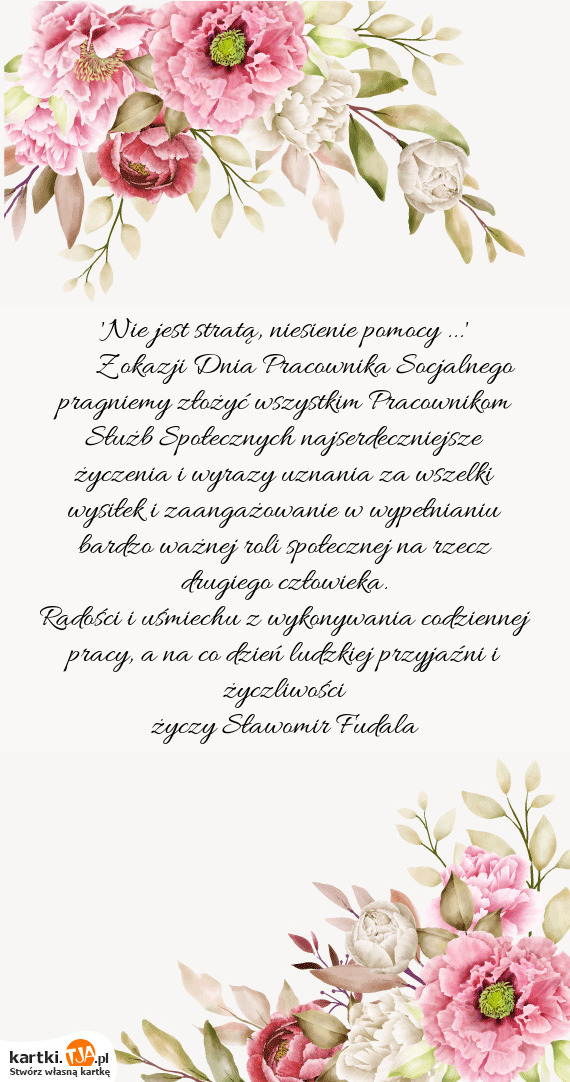 'Nie jest stratą, niesienie pomocy ...'
Z okazji Dnia Pracownika Socjalnego
pragniemy złożyć wszystkim Pracownikom
Służb Społecznych najserdeczniejsze
życzenia i wyrazy uznania za wszelki
wysiłek i zaangażowanie w wypełnianiu
bardzo ważnej roli społecznej na rzecz
drugiego człowieka.
Radości i uśmiechu z wykonywania codziennej
pracy, a na co dzień ludzkiej przyjaźni i
życzliwości
życzy Sławomir Fudala
kartki.TJA.pl
Stwórz własną kartkę